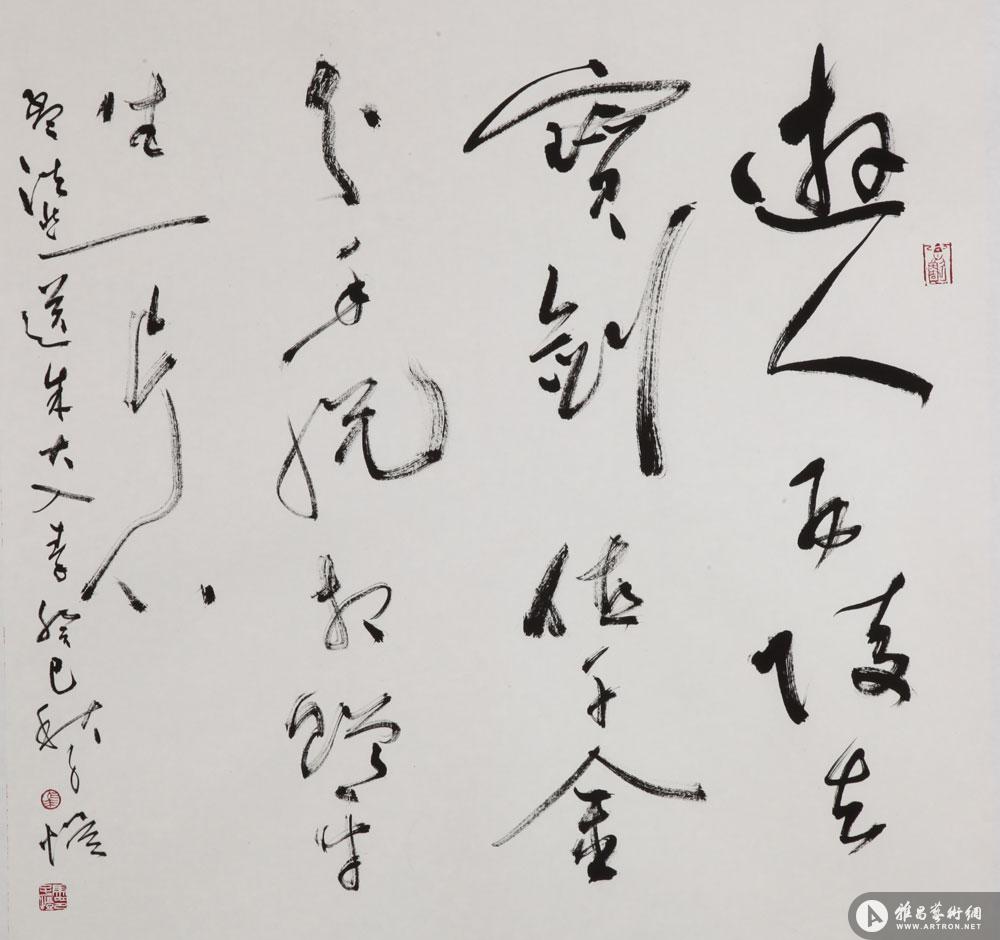 遊人五陵去
寶劍值千金
分手脫相贈平
生一片心
孟浩然送朱大入秦癸巳秋子愷
雅昌藝術網
WWW.ARTRON.NET